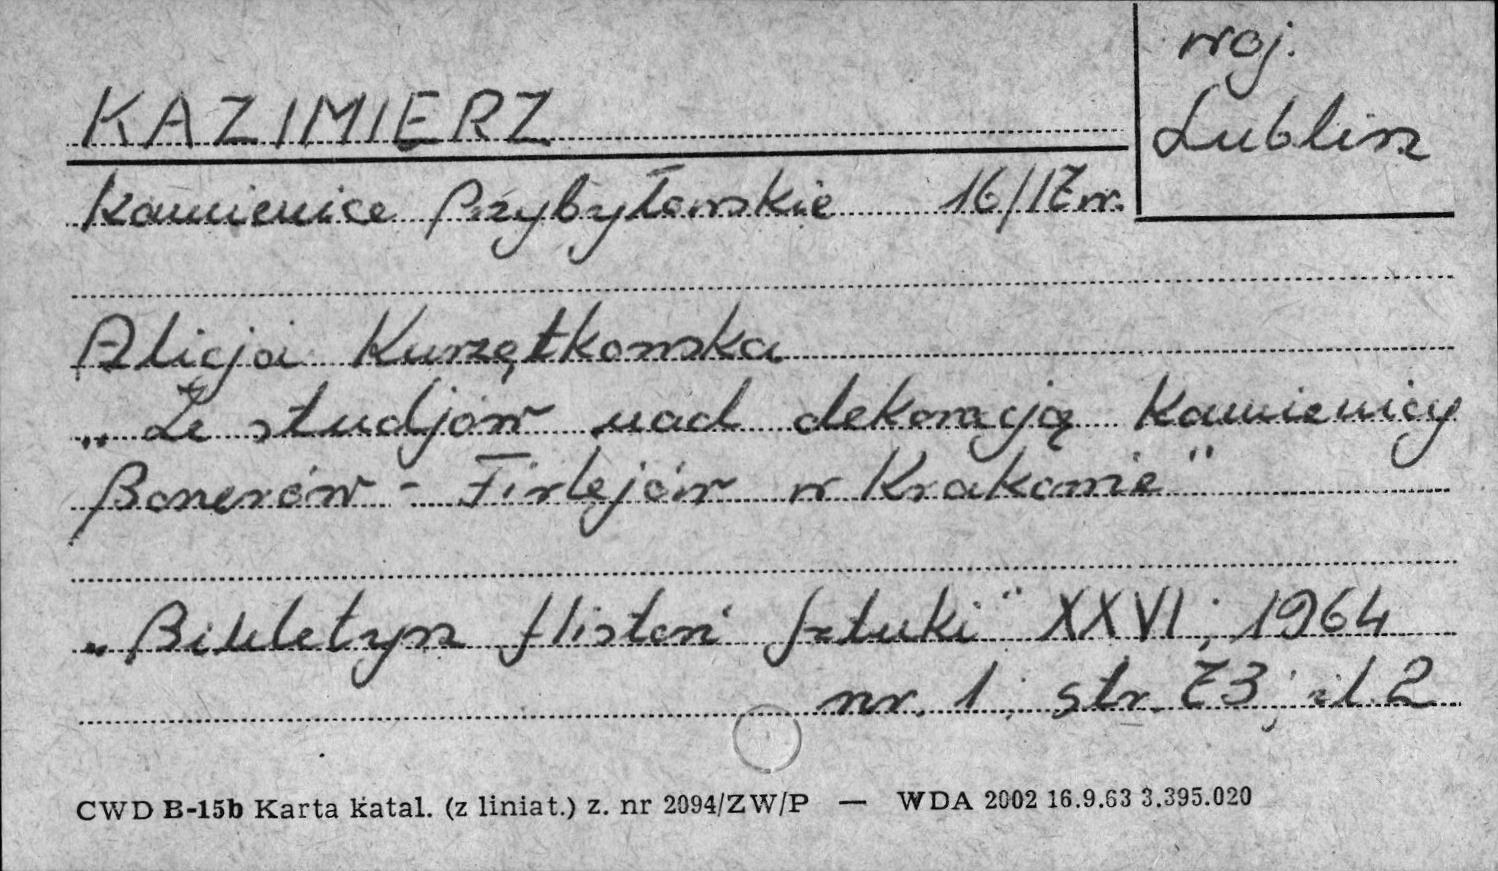 woj.
Lublin
KAZIMIERZ
Kamienice Przybyłowskie 16/17 w.
Alicja Kurzątkowska
„Ze studjów nad dekoracją kamienicy
Bonerów - Firlejów w Krakowie"
„Biuletyn Historii Sztuki" XXVI; 1964
nr. 1; str. 73; il. 2
CWD B-15b Karta katal. (z liniat.) z. nr 2094/ZW/P — WDA 2002 16.9.63 3.395.020